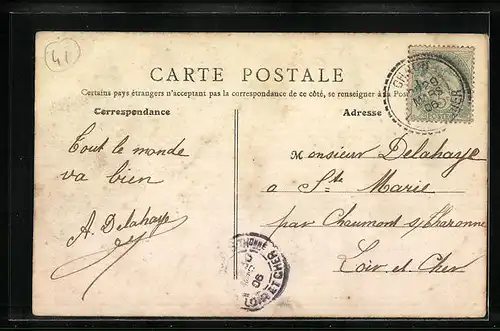 41
CARTE POSTALE
Certains pays étrangers n'acceptant pas la correspondance de ce côté, se renseigner à la Poste
Correspondance
Adresse
Tout le monde
va bien
A. Delahaye
Monsieur Delahaye
a Ste Marie
par Chaumont s/Tharonne
Loir et Cher
06
THONNE
06
LOIR ET CHER